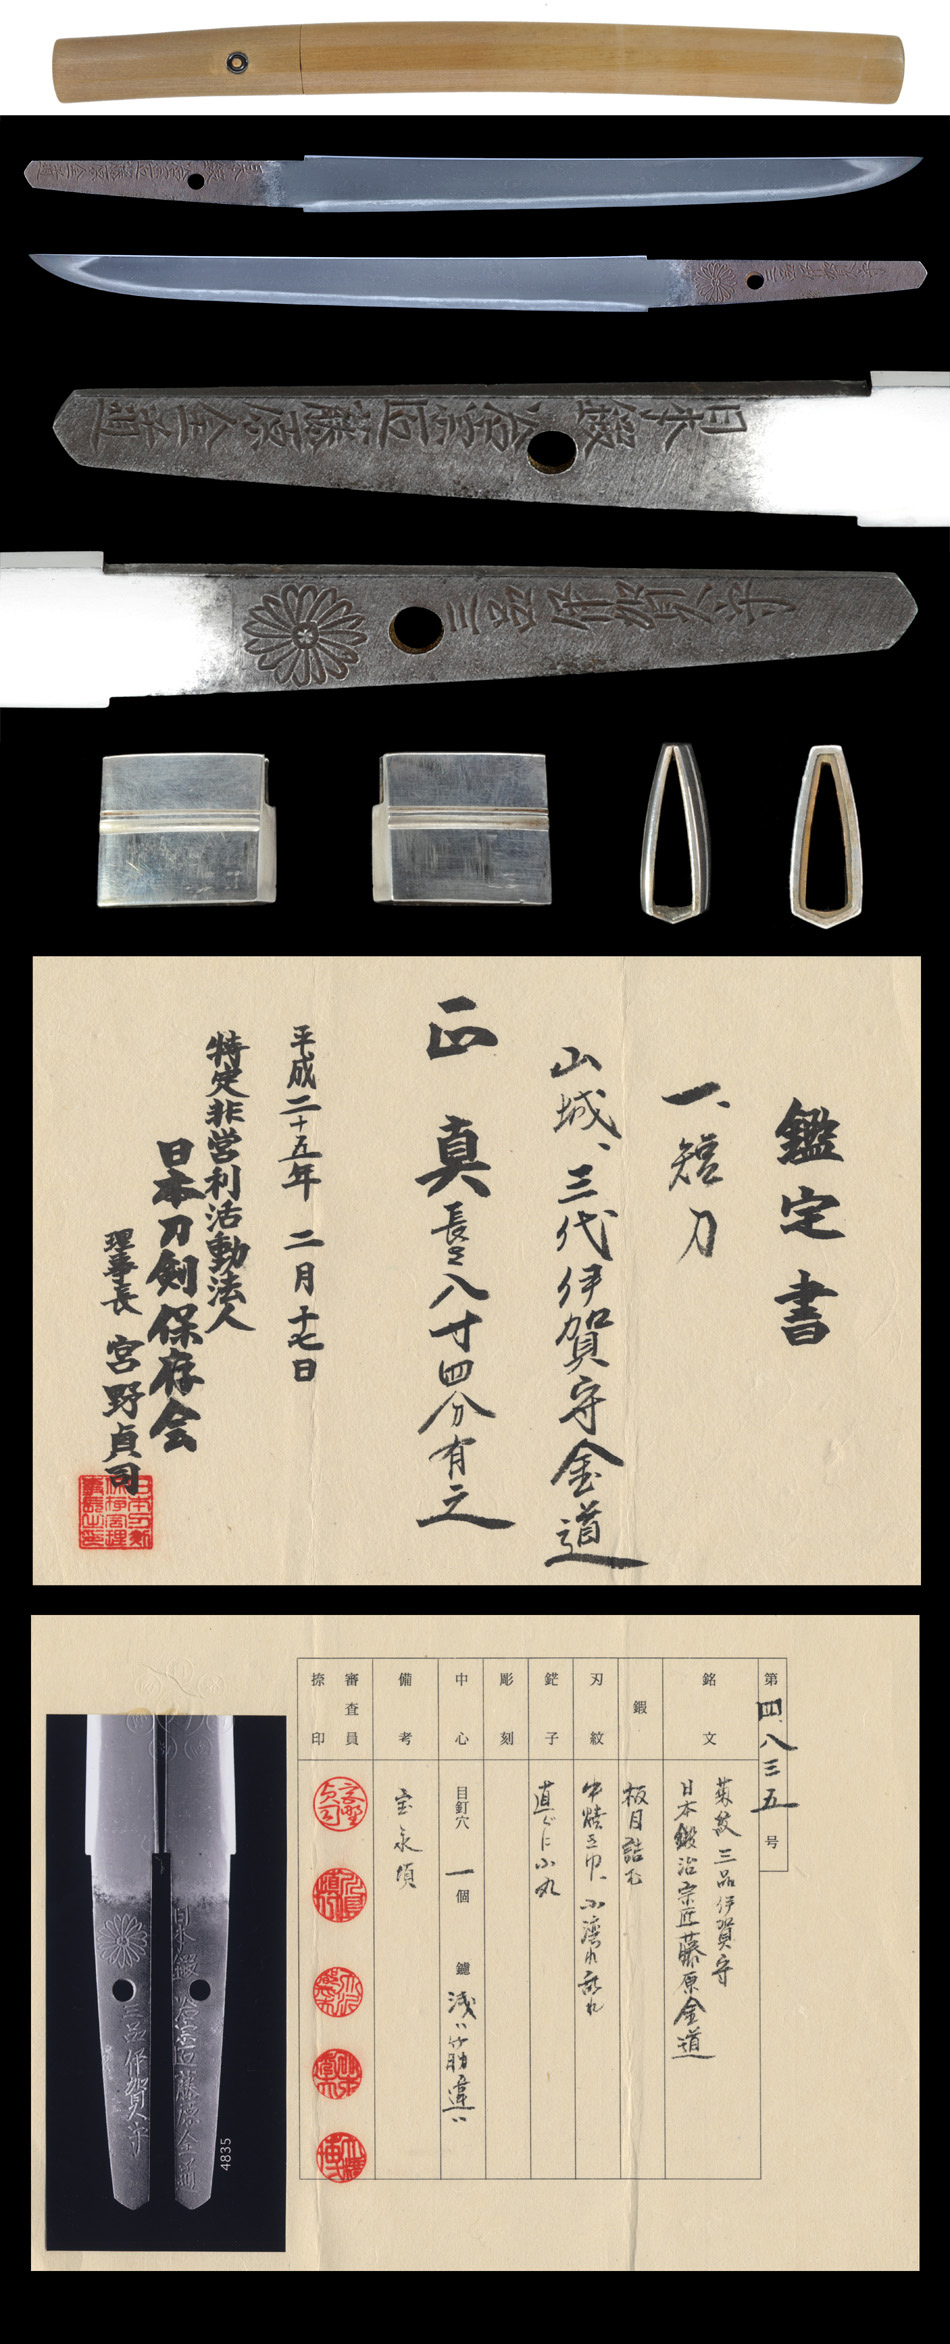 日本鍛冶宗匠藤原金道
三品伊賀守
鑑定書
一、短刀
山城、三代伊賀守金道
正真長さ八寸四分有之
平成二十五年 二月十七日
特定非営利活動法人
日本刀剣保存会
理事長 宮野貞司
第四、八三五号
銘文
菊紋 三品伊賀守
日本鍛冶宗匠藤原金道
鍛
板目詰む
刃紋
中焼き巾、小湾れ乱れ
鋩子
直ぐに小丸
彫刻
中心
目釘穴 一個 鑢 浅い筋違い
備考
宝永頃
審査員
捺印
三品伊賀守
日本鍛冶宗匠藤原金道
4835